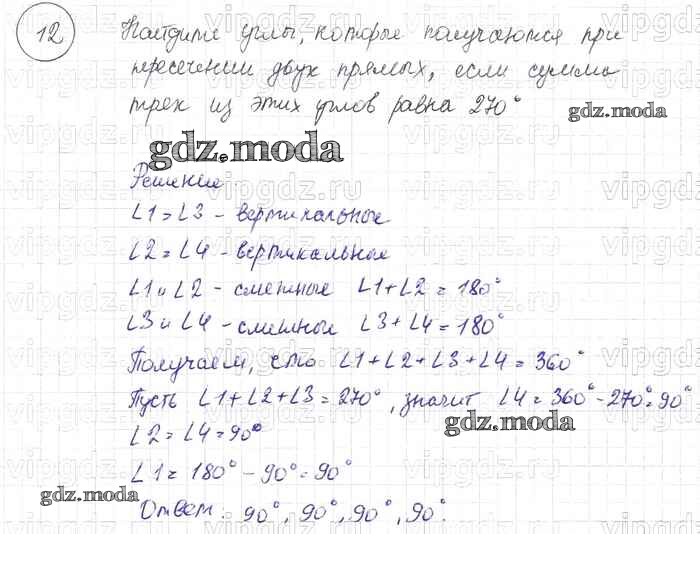 12
Найдите углы, которые получаются при
пересечении двух прямых, если сумма
трех из этих углов равна 270°
gdz.moda
gdz.moda
Решение
∠1=∠3 - вертикальные
∠2=∠4 - вертикальные
∠1 и ∠2 - смежные ∠1+∠2=180°
∠3 и ∠4 - смежные ∠3+∠4=180°
Получаем, что ∠1+∠2+∠3+∠4=360°
Пусть ∠1+∠2+∠3=270°, значит ∠4=360°-270°=90°
gdz.moda
∠2=∠4=90°
∠1=180°-90°=90°
gdz.moda
Ответ: 90°, 90°, 90°, 90°.